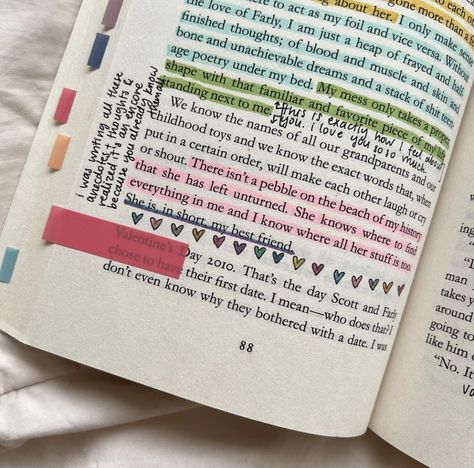 gone more than a f
to each o
there to act as my foil and vice versa. Witho
ing about her. I only make sense
the love of Farly, I am just a heap of frayed and half-
finished thoughts; of blood and muscle and skin and
bone and unachievable dreams and a stack of shit teen-
age poetry under my bed. My mess only takes a proper
shape with that familiar and favorite piece of my life
standing next to me.
*this is exactly how i feel about
you. i love you so so much
We know the names of all our grandparents and our
childhood toys and we know the exact words that, when
put in a certain order, will make each other laugh or cry
or shout. There isn't a pebble on the beach of my history
that she has left unturned. She knows where to find
everything in me and I know where all her stuff is too.
She is, in short, my best friend.
i was writing all these
anecdotes, thoughts &
realized it's an eyesore
because you already know
them
Valentine's Day 2010. That's the day Scott and Farly
chose to have their first date. I mean—who does that? I
don't even know why they bothered with a date. I was
88
"I
mea
takes
around
going to
like him
"No. It